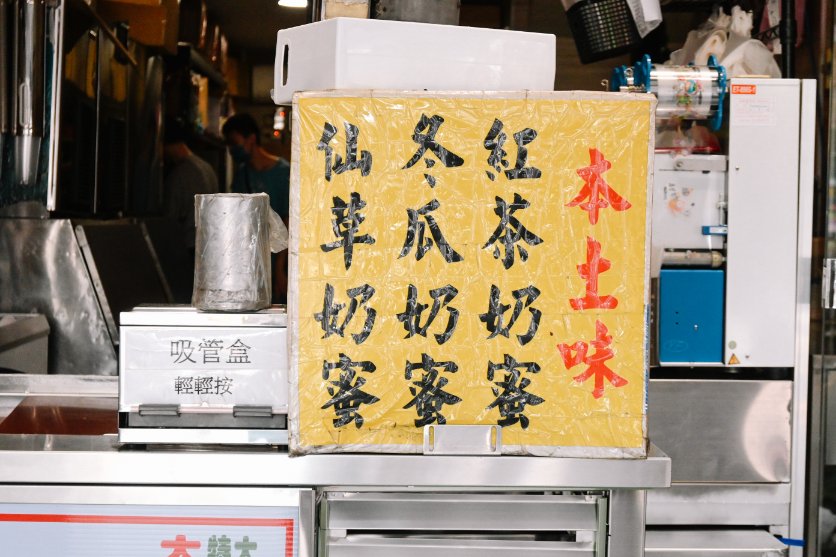 本土味
紅茶奶蜜
冬瓜奶蜜
仙草奶蜜
吸管盒
輕輕按